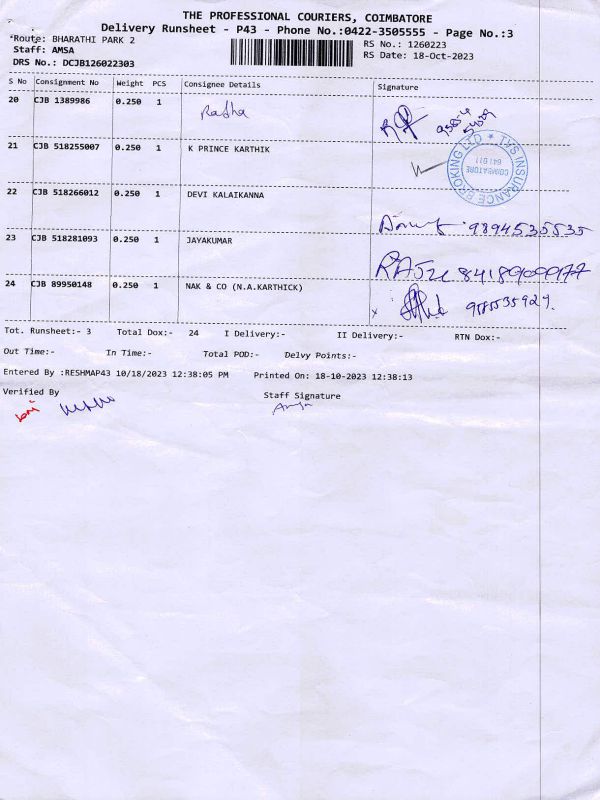 THE PROFESSIONAL COURIERS, COIMBATORE
Delivery Runsheet - P43 - Phone No.:0422-3505555 - Page No.:3
Route: BHARATHI PARK 2
RS No.: 1260223
Staff: AMSA
RS Date: 18-Oct-2023
DRS No.: DCJB126022303
S No Consignment No Weight PCS Consignee Details Signature
20 CJB 1389986 0.250 1 Radha
21 CJB 518255007 0.250 1 K PRINCE KARTHIK
TVS INSURANCE BROKING LTD
COIMBATORE
641 011
22 CJB 518266012 0.250 1 DEVI KALAIKANNA
9894535535
23 CJB 518281093 0.250 1 JAYAKUMAR
24 CJB 89950148 0.250 1 NAK & CO (N.A.KARTHICK)
Tot. Runsheet:- 3 Total Dox:- 24 I Delivery:- II Delivery:- RTN Dox:-
Out Time:- In Time:- Total POD:- Delvy Points:-
Entered By :RESHMAP43 10/18/2023 12:38:05 PM Printed On: 18-10-2023 12:38:13
Verified By
Staff Signature